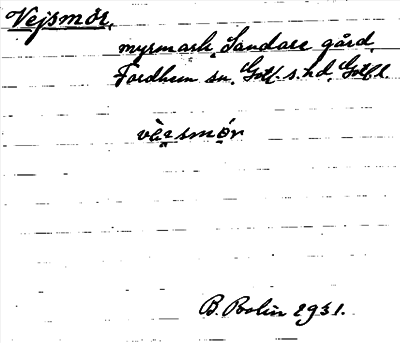 Vejsmör.
myrmark, Sandare gård,
Fardhem sn, Gotl. s. hd, Gotl.
vèi̯smör
B. Bolin 1931.